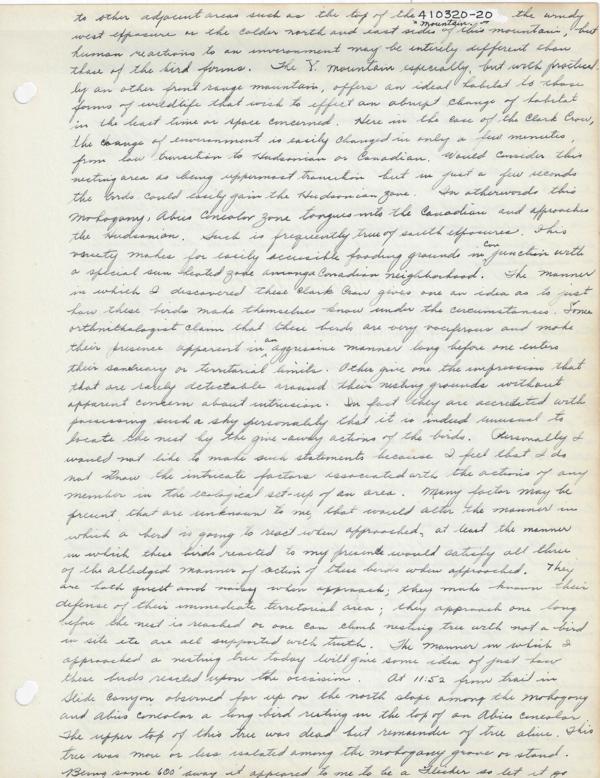 to other adjacent areas such as the top of the 410320-20 the windy
"mountain" or
west exposure or the colder north and east sides of this mountain, but
human reactions to an environment may be entirely different than
those of the bird forms. The Y. Mountain especially, but with practical
by an other front range mountain, offers an ideal habitat to those
forms of wildlife that wish to effect an abrupt change of habitat
in the least time or space concerned. Here in the case of the Clark Crow,
the change of environment is easily changed in only a few minutes
from low transition to Hudsonian or Canadian. Would consider this
nesting area as being uppermost transition but in just a few seconds
the birds could easily gain the Hudsonian zone. In otherwords this
Mohogany, Abies Concolor zone tongues into the Canadian and approaches
the Hudsonian. Such is frequently true of south exposures. This
variety makes for easily accessible fooding grounds in conjunction with
a special sun heated zone amongs Canadian neighborhood. The manner
in which I discovered these Clark Crow gives one an idea as to just
how these birds make themselves know under the circumstances. Some
orthnithologist claim that these birds are very vociferous and make
their presence apparent in an aggresive manner long before one enters
their sanctuary or territorial limits. Other give one the impression that
that are rarely detectable around their nesting grounds without
apparent concern about intrusion. In fact they are accredited with
possessing such a shy personality that it is indeed unusual to
locate the nest by the give-away actions of the birds. Personally I
would not like to make such statements because I feel that I do
not know the intricate factors associated with the actions of any
member in the ecological set-up of an area. Many factor may be
present that are unknown to me that would alter the manner in
which a bird is going to react when approached, at least the manner
in which these birds reacted to my presence would satisfy all three
of the alledged manner of action of these birds when approached. They
are both quiet and noisy when approach; they make known their
defense of their immediate territorial area; they approach one long
before the nest is reached or one can climb nesting tree with not a bird
in site etc are all supported with truth. The manner in which I
approached a nesting tree today will give some idea of just how
these birds reacted upon the occasion. At 11:52 from trail in
Slide Canyon observed far up on the north slope among the Mohogony
and Abies concolor a long bird resting in the top of an Abies concolor.
The upper top of this tree was dead but remainder of tree alive. This
tree was more or less isolated among the mohogany grove or stand.
Being some 600' away it appeared to me to be a Flicker so let it go